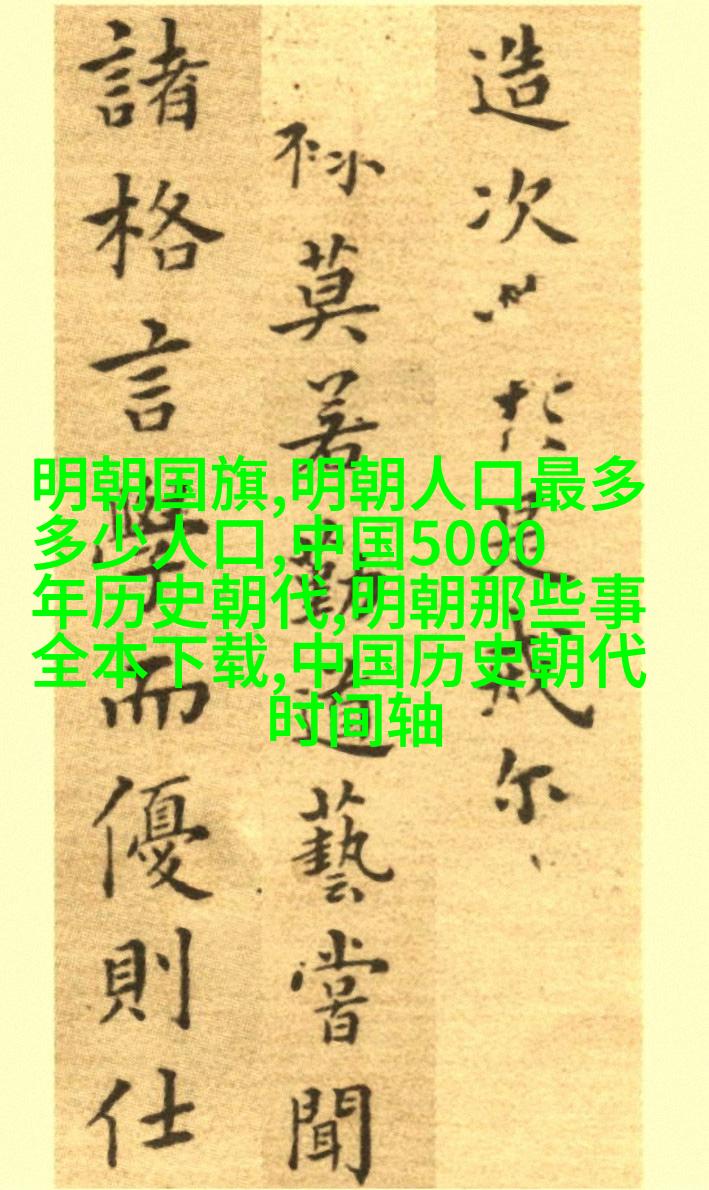 造次是戒尔
莫若勤道藝嘗聞
諸格言學而優則仕
明朝国旗,明朝人口最多
多少人口,中国5000
年历史朝代,明朝那些事
全本下载,中国历史朝代
时间轴